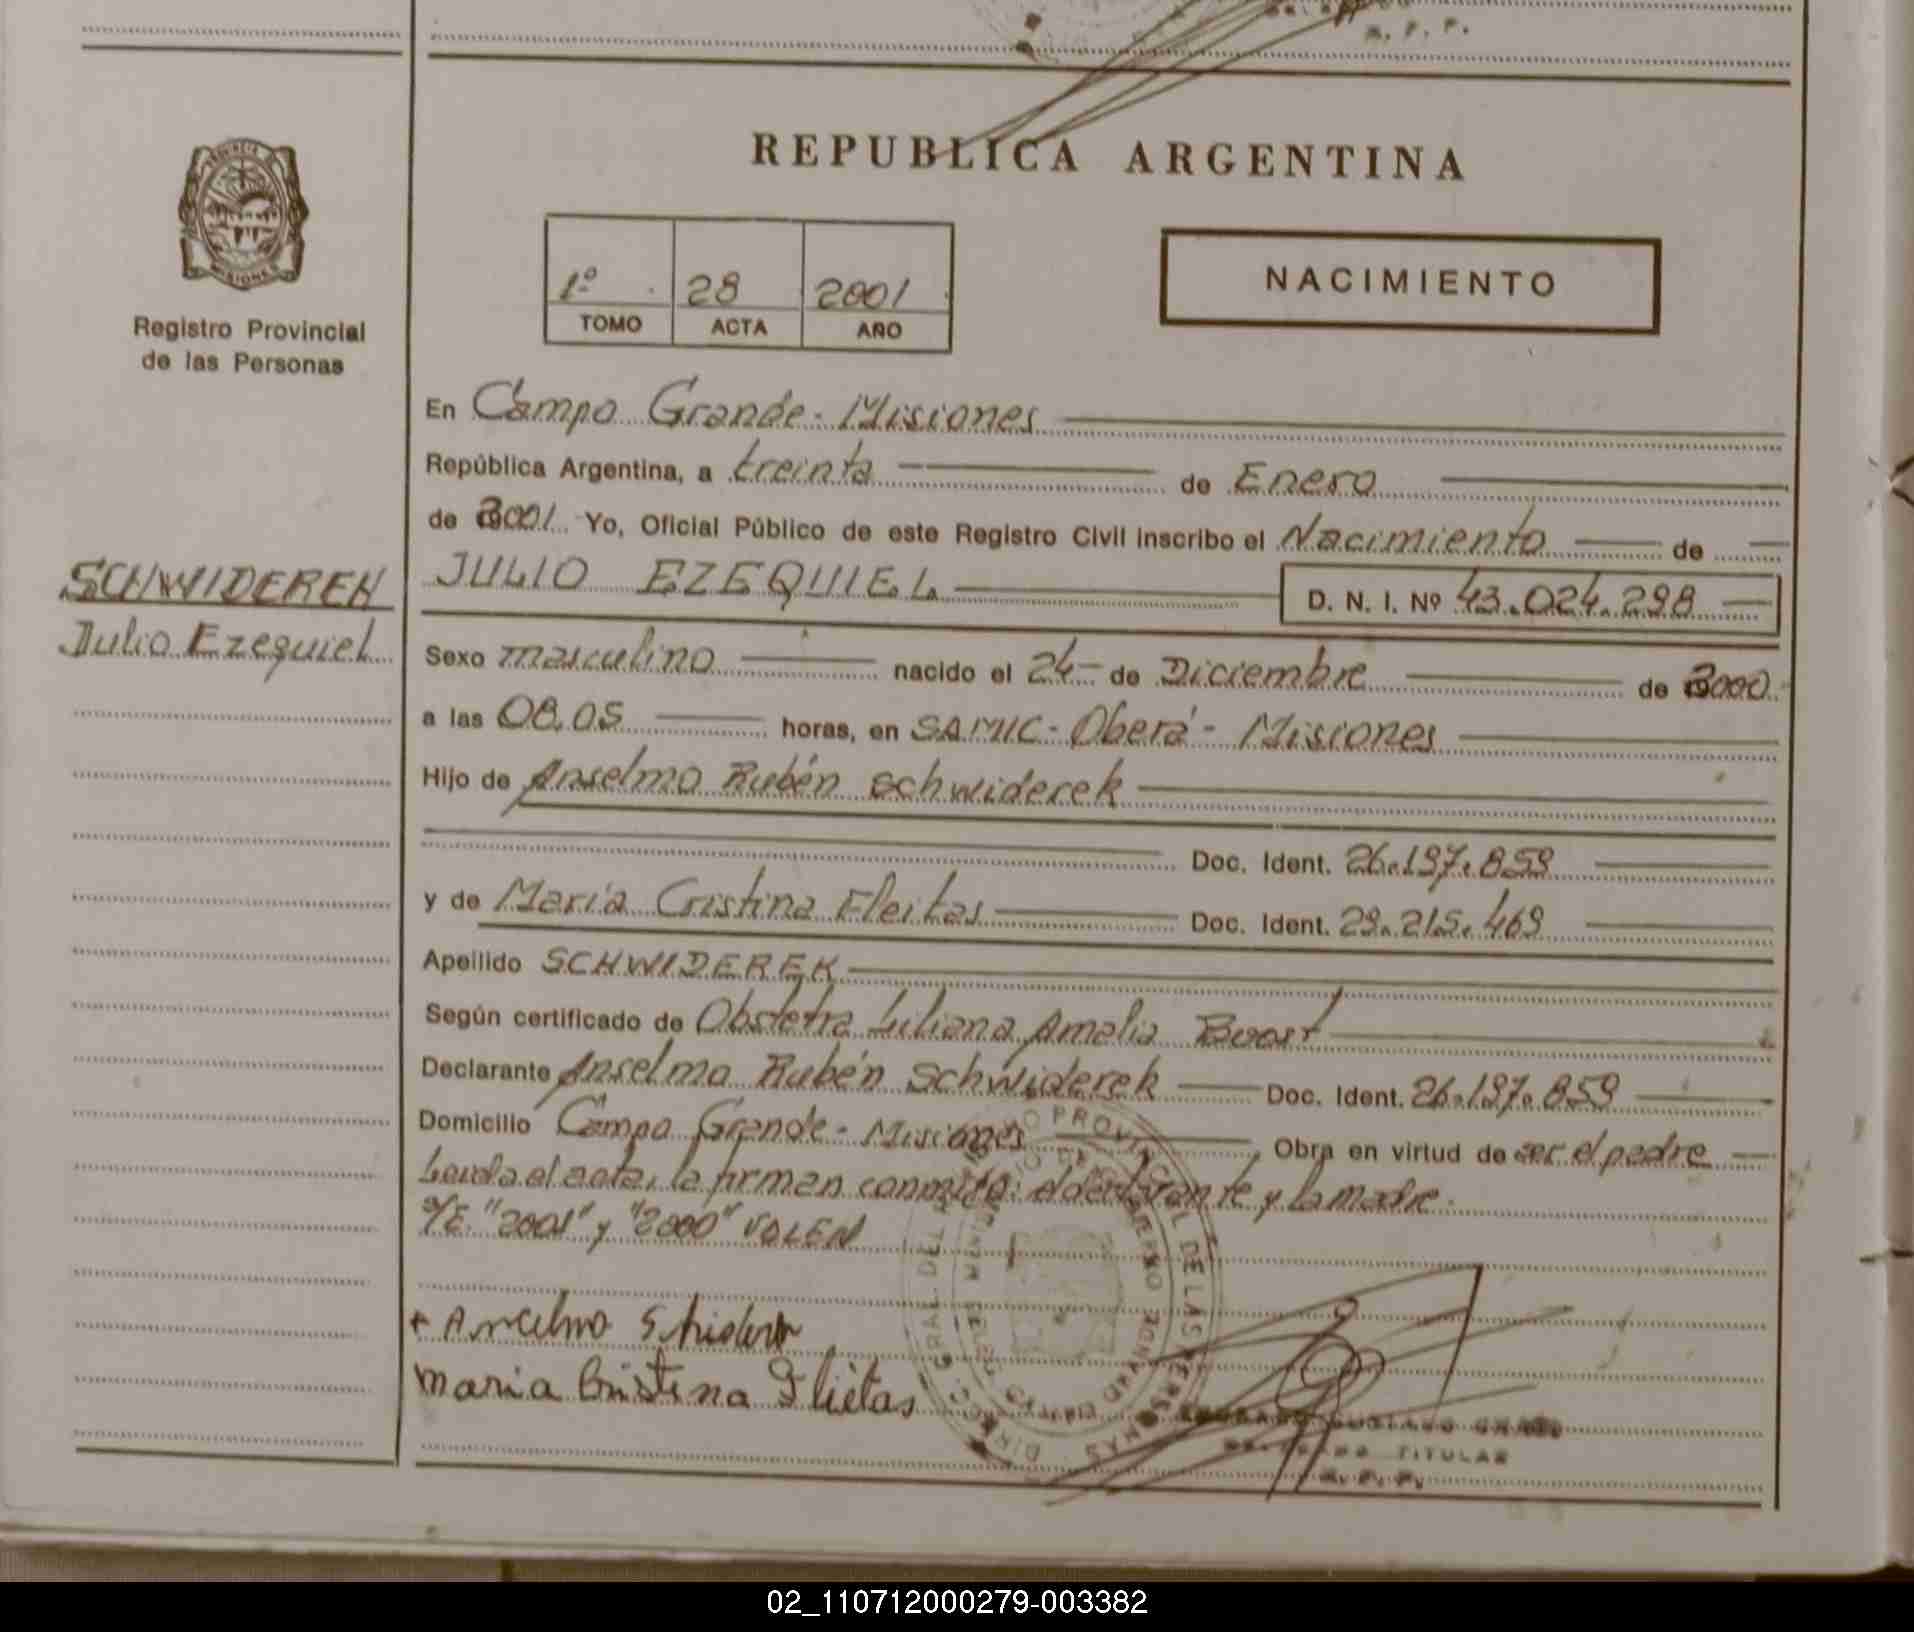 R. P. P.
REPUBLICA ARGENTINA
PROVINCIA DE
MISIONES
Registro Provincial
de las Personas
1º 28 2001
TOMO ACTA AÑO
NACIMIENTO
En Campo Grande - Misiones
República Argentina, a treinta de Enero
de 2001 Yo, Oficial Público de este Registro Civil inscribo el Nacimiento de
SCHWIDEREK
Julio Ezequiel
JULIO EZEQUIEL D. N. I. Nº 43.024.298
Sexo masculino nacido el 24 de Diciembre de 2000
a las 08.05 horas, en SAMIC - Oberá - Misiones
Hijo de Anselmo Rubén Schwiderek
Doc. Ident. 26.197.859
y de María Cristina Fleitas Doc. Ident. 29.215.469
Apellido SCHWIDEREK
Según certificado de Obstetra Liliana Amalia Boost
Declarante Anselmo Rubén Schwiderek Doc. Ident. 26.197.859
Domicilio Campo Grande - Misiones Obra en virtud de ser el padre
Leída el acta, la firman conmigo: el declarante y la madre.
S/E. "2001" y "2000" VALEN
Maria Cristina Flietas
TITULAR
R. P. P.
02_110712000279-003382